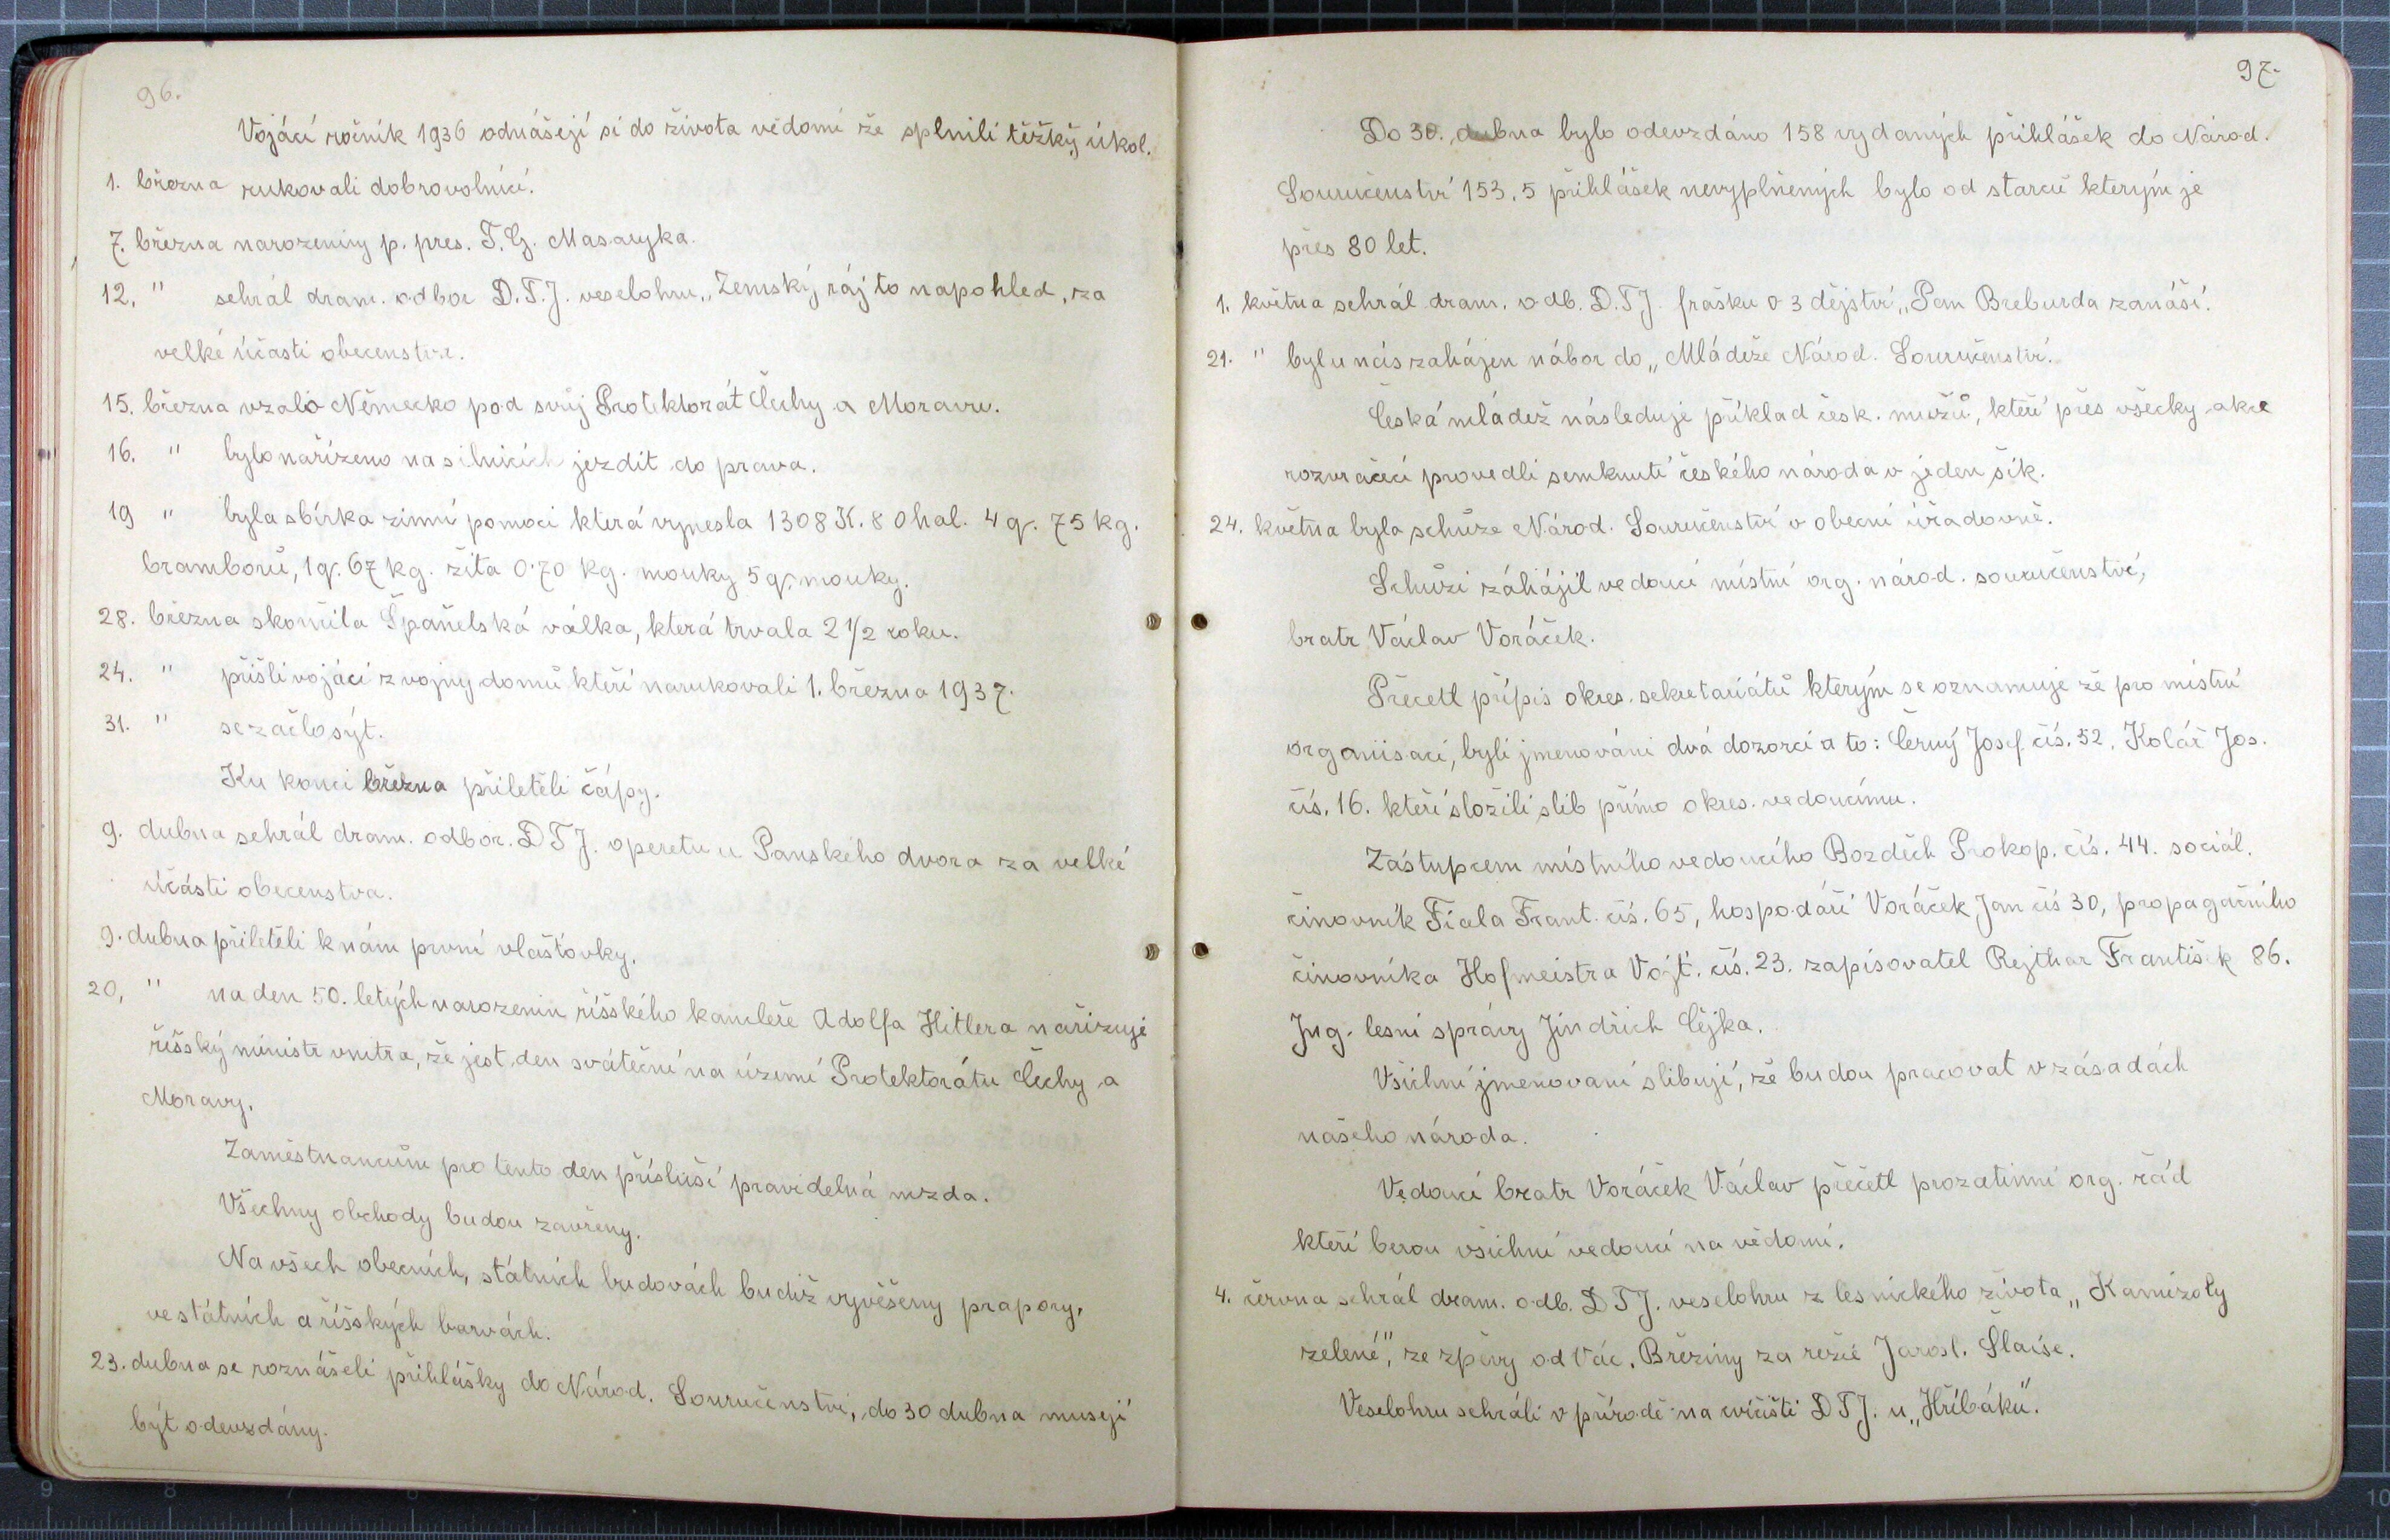 96.
Vojáci ročník 1936 odnášejí si do života vědomí že splnili těžký úkol.
1. března rukovali dobrovolníci.
7. března narozeniny p. pres. T. G. Masaryka.
12. " sehrál dram. odbor D.T.J. veselohru „Zemský ráj to napohled, za
velké účasti obecenstva.
15. března vzalo Německo pod svůj Protektorát Čechy a Moravu.
16. " bylo nařízeno na silnicích jezdit do prava.
19 " byla sbírka zimní pomoci která vynesla 1308 K. 80 hal. 4 q. 75 kg.
bramborů, 1 q. 67 kg. žita 0·70 kg. mouky 5 q. mouky.
28. března skončila Španělská válka, která trvala 2 1/2 roku.
24. " přišli vojáci z vojny domů kteří narukovali 1. března 1937.
31. " se začlo sýt.
Ku konci března přiletěli čápy.
9. dubna sehrál dram. odbor. D T J. operetu u Panského dvora za velké
účásti obecenstva.
9. dubna přiletěli k nám první vlaštovky.
20, " na den 50. letých narozenin říšského kancleře Adolfa Hitlera nařizuje
říšský ministr vnitra, že jest den sváteční na území Protektorátu Čechy a
Moravy.
Zaměstnancům pro tento den přísluší pravidelná mzda.
Všechny obchody budou zavřeny.
Na všech obecních, státních budovách budiž vyvěšeny prapory,
ve státních a říšských barvách.
23. dubna se roznášeli přihlášky do Národ. Souručenství, do 30 dubna musejí
být odevzdány.
97.
Do 30. dubna bylo odevzdáno 158 vydaných přihlášek do Národ.
Souručenství 153. 5 přihlášek nevyplněných bylo od starců kterým je
přes 80 let.
1. května sehrál dram. odb. D.T J. frašku o 3 dějství „Pan Breburda zanáší.
21. " byl u nás zahájen nábor do „Mládeže Národ. Souručenství.
Česká mládež následuje příklad česk. mužů, kteří přes všecky akce
rozvračící provedli semknutí českého národa v jeden šik.
24. května byla schůze Národ. Souručenství v obecní úřadovně.
Schůzi záhájil vedoucí místní org. národ. souručenství,
bratr Václav Voráček.
Přečetl přípis okres. sekretariátů kterým se oznamuje že pro místní
organisaci, byli jmenováni dvá dozorci a to: Černý Josef čís. 52, Kolář Jos.
čís. 16. kteří složili slib přímo okres. vedoucímu.
Zástupcem místního vedoucího Bozděch Prokop. čís. 44. sociál.
činovník Fiala Frant. čís. 65, hospodáři Voráček Jan čís 30, propagačního
činovníka Hofmeistra Vojt. čís. 23. zapisovatel Rejthar František 86.
Jng. lesní správy Jindřich Cějka.
Všichni jmenovaní slibují, že budou pracovat v zásadách
našeho národa.
Vedoucí bratr Voráček Václav přečetl prozatimní org. řád
kteří berou všichni vedoucí na vědomí.
4. června sehrál dram. odb. D T J. veselohru z lesnického života „Kamizoly
zelené", ze zpěvy od Vác. Březiny za režie Jarosl. Slaise.
Veselohru sehráli v přírodě na cvičišti D T J. u „Hříbáků".